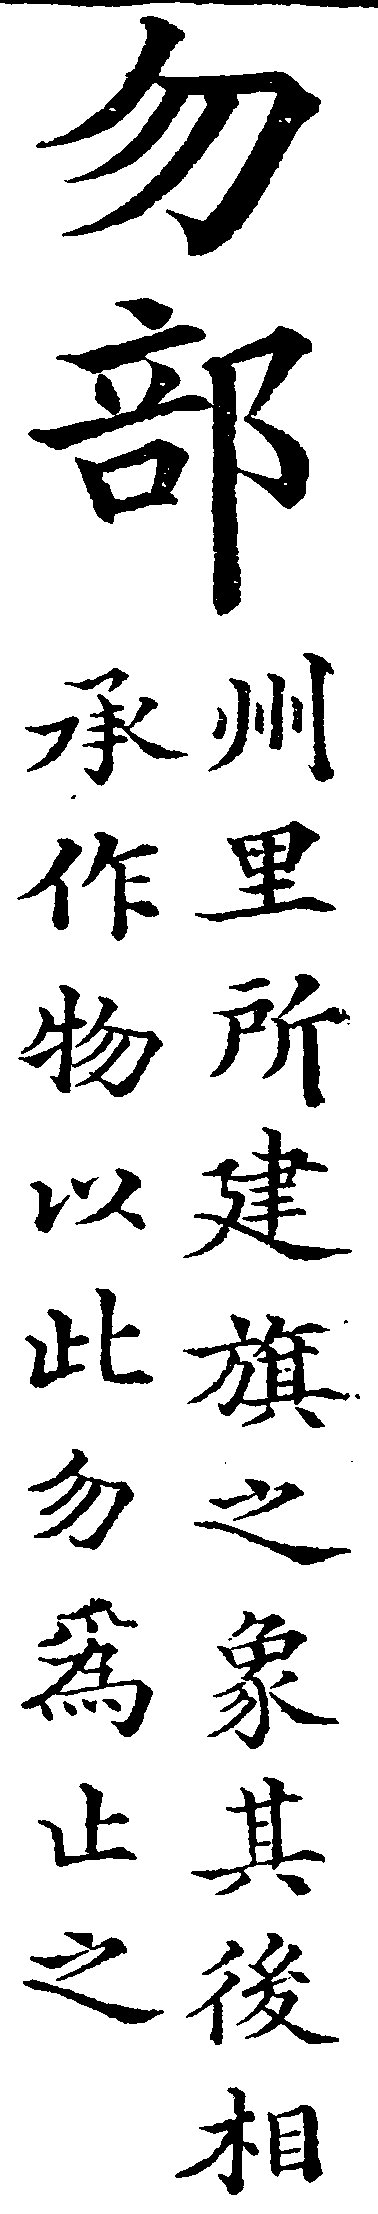 勿部
州里所建旗之象其後相
承作物以此勿爲止之